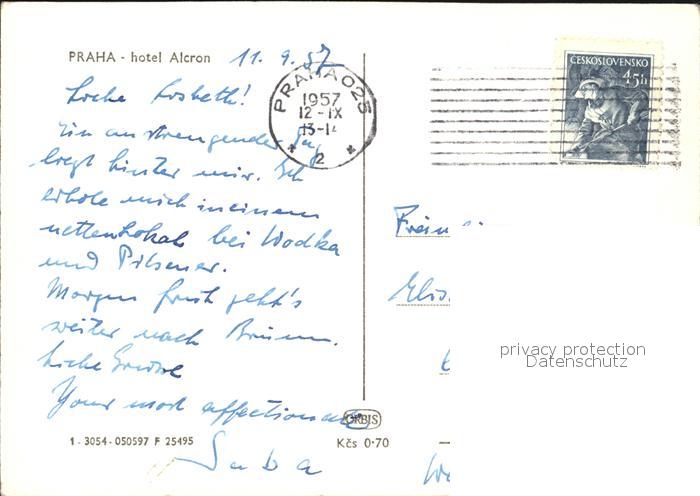 PRAHA - hotel Alcron 11. 9. 57
Liebe Lisbeth!
Ein anstrengender Tag
liegt hinter mir. Ich
erhole mich in einem
netten Lokal bei Wodka
und Pilsener.
Morgen früh geht's
weiter nach Brünn.
Liebe Grüße
Your most affectionate
1 - 3054 - 050597 F 25495
ORBIS
Kčs 0·70
PRAHA 025
1957
12 - IX
13-14
2
ČESKOSLOVENSKO
45h
privacy protection
Datenschutz